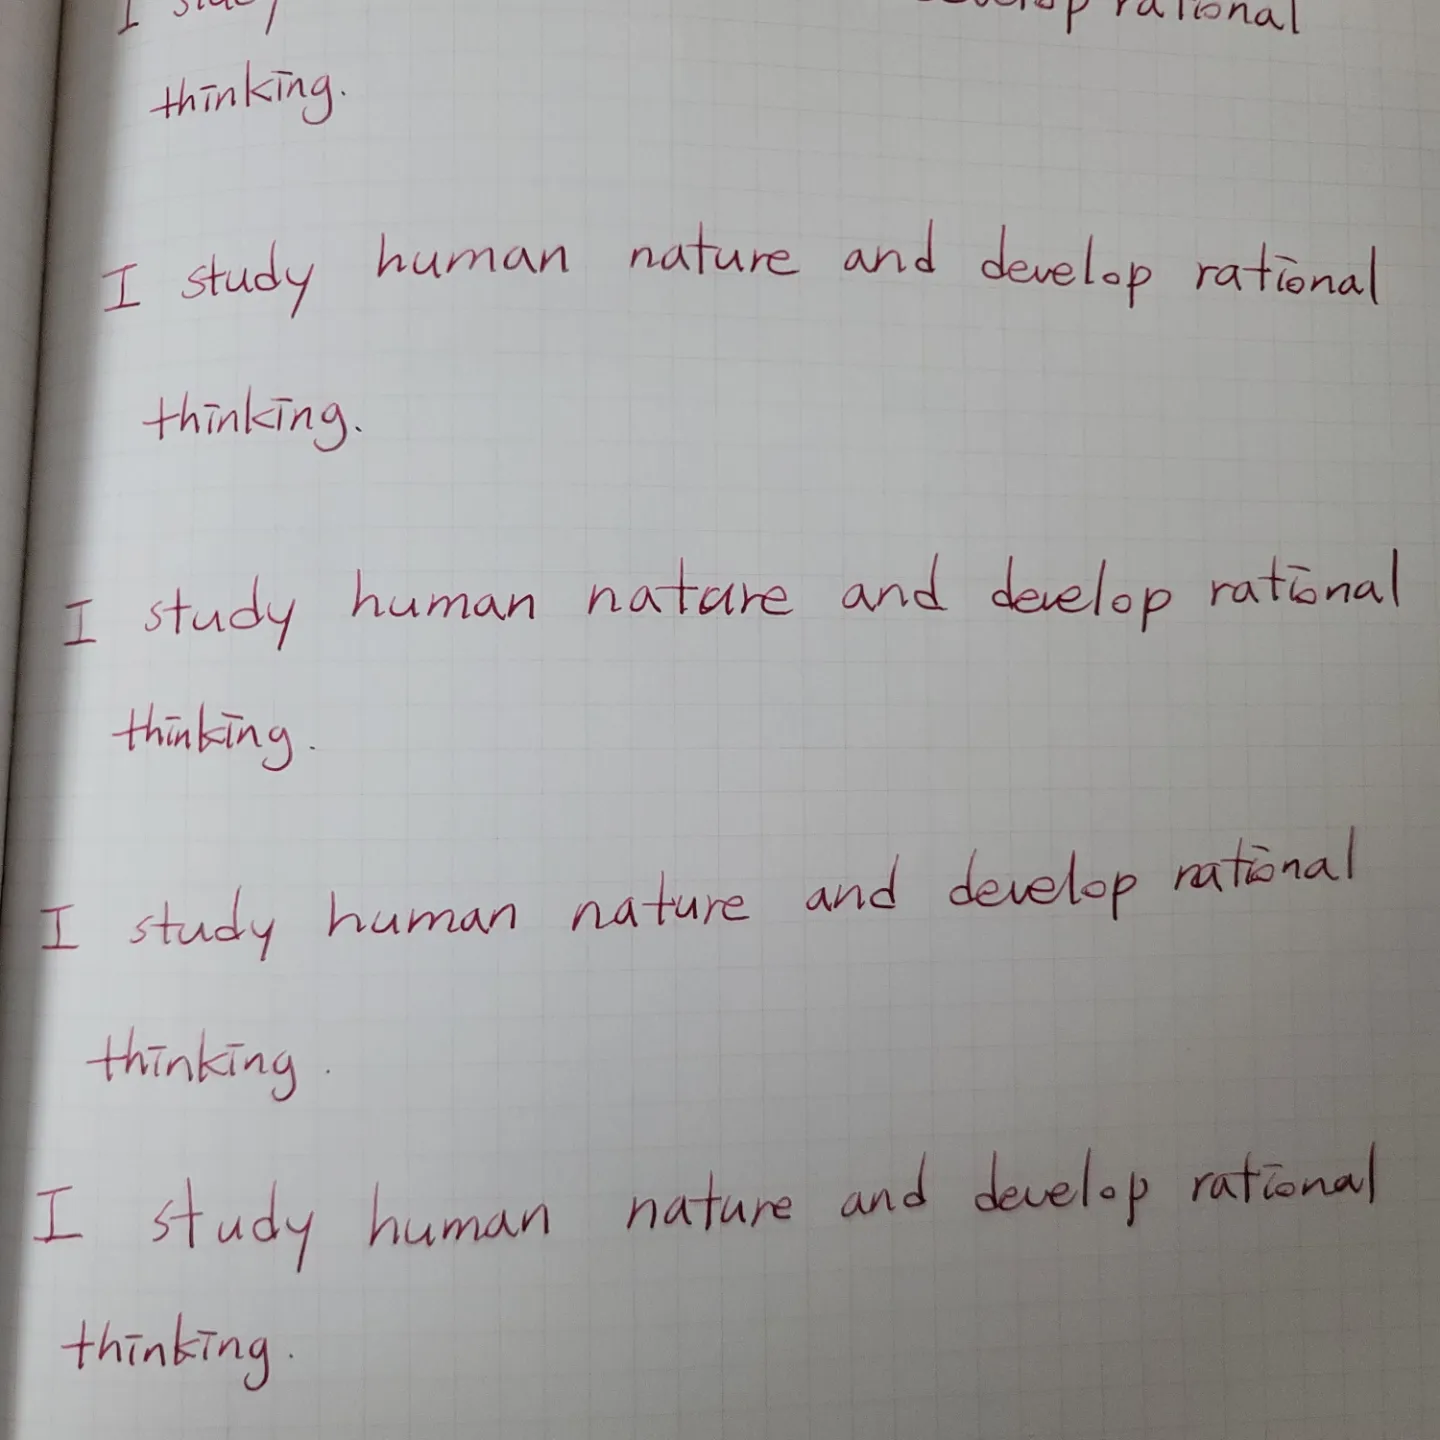 I study develop rational
thinking.
I study human nature and develop rational
thinking.
I study human nature and develop rational
thinking.
I study human nature and develop rational
thinking.
I study human nature and develop rational
thinking.